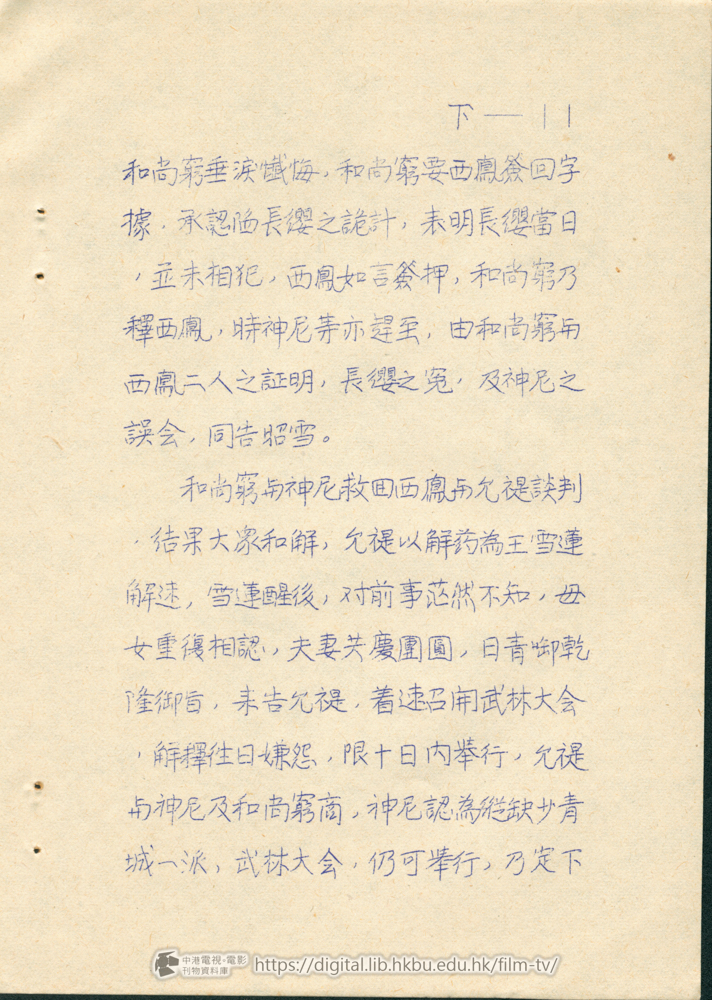 下——11
和尚窮垂淚懺悔，和尚窮要西鳳簽回字
據，承認陷長纓之詭計，表明長纓當日
，並未相犯，西鳳如言簽押，和尚窮乃
釋西鳳，時神尼等亦趕至，由和尚窮与
西鳳二人之証明，長纓之冤，及神尼之
誤会，同告昭雪。
和尚窮与神尼救回西鳳与允禔談判
，結果大衆和解，允禔以解药為王雪蓮
解迷，雪蓮醒後，对前事茫然不知，母
女重復相認，夫妻共慶團圓，日青啣乾
隆御旨，来告允禔，着速召開武林大会
，解釋往日嫌怨，限十日内举行，允禔
与神尼及和尚窮商，神尼認為縱缺少青
城一派，武林大会，仍可举行，乃定下
中港電視·電影
刊物資料庫
https://digital.lib.hkbu.edu.hk/film-tv/